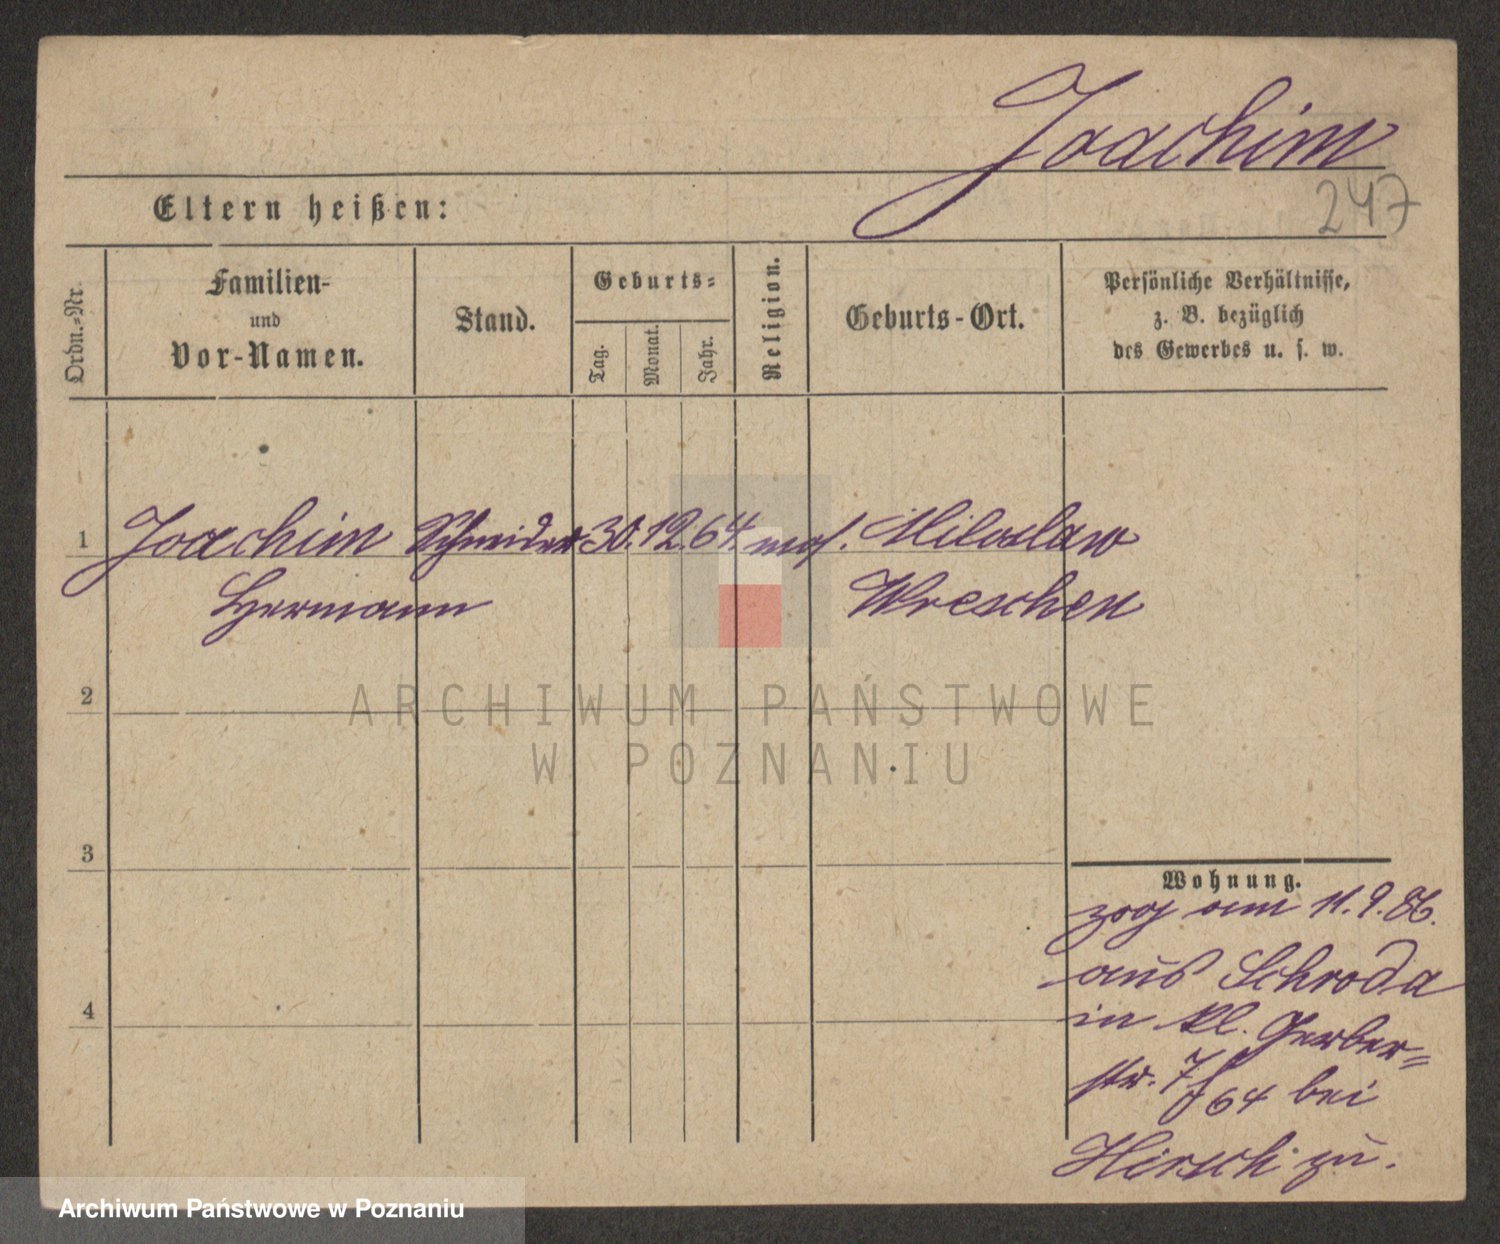 Joachim
247
Eltern heißen:
Ordn.-Nr.
Familien-
und
Vor-Namen.
Stand.
Geburts-
Tag.
Monat.
Jahr.
Religion.
Geburts-Ort.
Persönliche Verhältnisse,
z. B. bezüglich
des Gewerbes u. s. w.
1 Joachim Schneider 30. 12. 64 mos. Miloslaw
Hermann Wreschen
2
ARCHIWUM PAŃSTWOWE
W POZNANIU
3
Wohnung.
zog am 11.9.86.
aus Schroda
in kl. Gerber-
str. 7/64 bei
Hirsch zu.
4
Archiwum Państwowe w Poznaniu